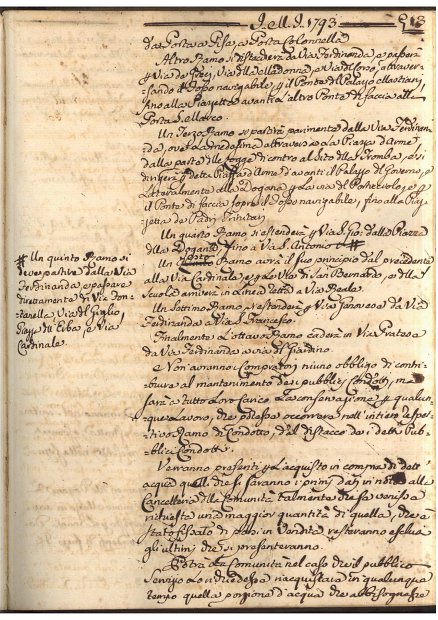 Del dì. 1793.
da Porta a Pisa, a Porta Colonnella
Altro Ramo si estenderà da Via Ferdinanda, e passerà
Via della Madonna, e Via del Corso, attraver-
sando il Fosso navigabile, il Ponte del
fino alla Piazzetta avanti l'altro Ponte di faccia alla
Porta
Un Terzo Ramo si partirà parimente dalla Via Ferdinan-
da, ove la medesima attraversa la Piazza d'Arme
dalla parte delle Logge di contro al Sito della Tromba, e si
dirigerà detta Piazza d'Arme davanti il Palazzo del Governo, e
Lateralmente alla Dogana, e la via del
il Ponte di faccia sopra il Fosso navigabile, fino alla Piaz-
zetta da Padri Trinitari
Un quarto Ramo si estenderà Via S. Gio: dalla Piazza
della Dogana fino a Via S. Antonio #
Un Sesto Ramo avrà il suo principio dal precedente
alla Via Cardinale, e la Via di San Bernardo, e delle
Scuole anderà in linea retta a Via Reale.
Un Settimo Ramo si estenderà Via da Via
Ferdinanda a Via S. Francesco.
Finalmente L'ottavo Ramo caderà in Via
da Via Ferdinanda a via del Giardino.
E Non avranno i Compratori niuno obbligo di contri-
buire al mantenimento dei pubblici Condotti, ma
sarà a tutto Loro carico La conservazione, e qualun-
que Lavoro, che possa occorrere nell'intiero respet-
tivo Ramo di Condotto, dal distacco dai detti Pub-
blici Condotti.
Verranno presenti L'acquisto in compra di dett'
acque quelli che si saranno i primi dati in nota alla
Cancelleria della Comunità talmente che se venisse
richiesta una maggior quantità di quella, che è
stato fissato di porsi in Vendita resteranno esclusi
gli ultimi che si presenteranno.
Potrà La Comunità nel caso che il pubblico
Servizio Lo richiedesse riacquistare in qualunque
tempo quella porzione d'acqua che abbisognasse
# Un quinto Ramo si
deve partire dalla Via
Ferdinanda, e passare
direttamente di Via Fon-
tanella, Via del Giglio,
Piazza dell'Erba, e Via
Cardinale.